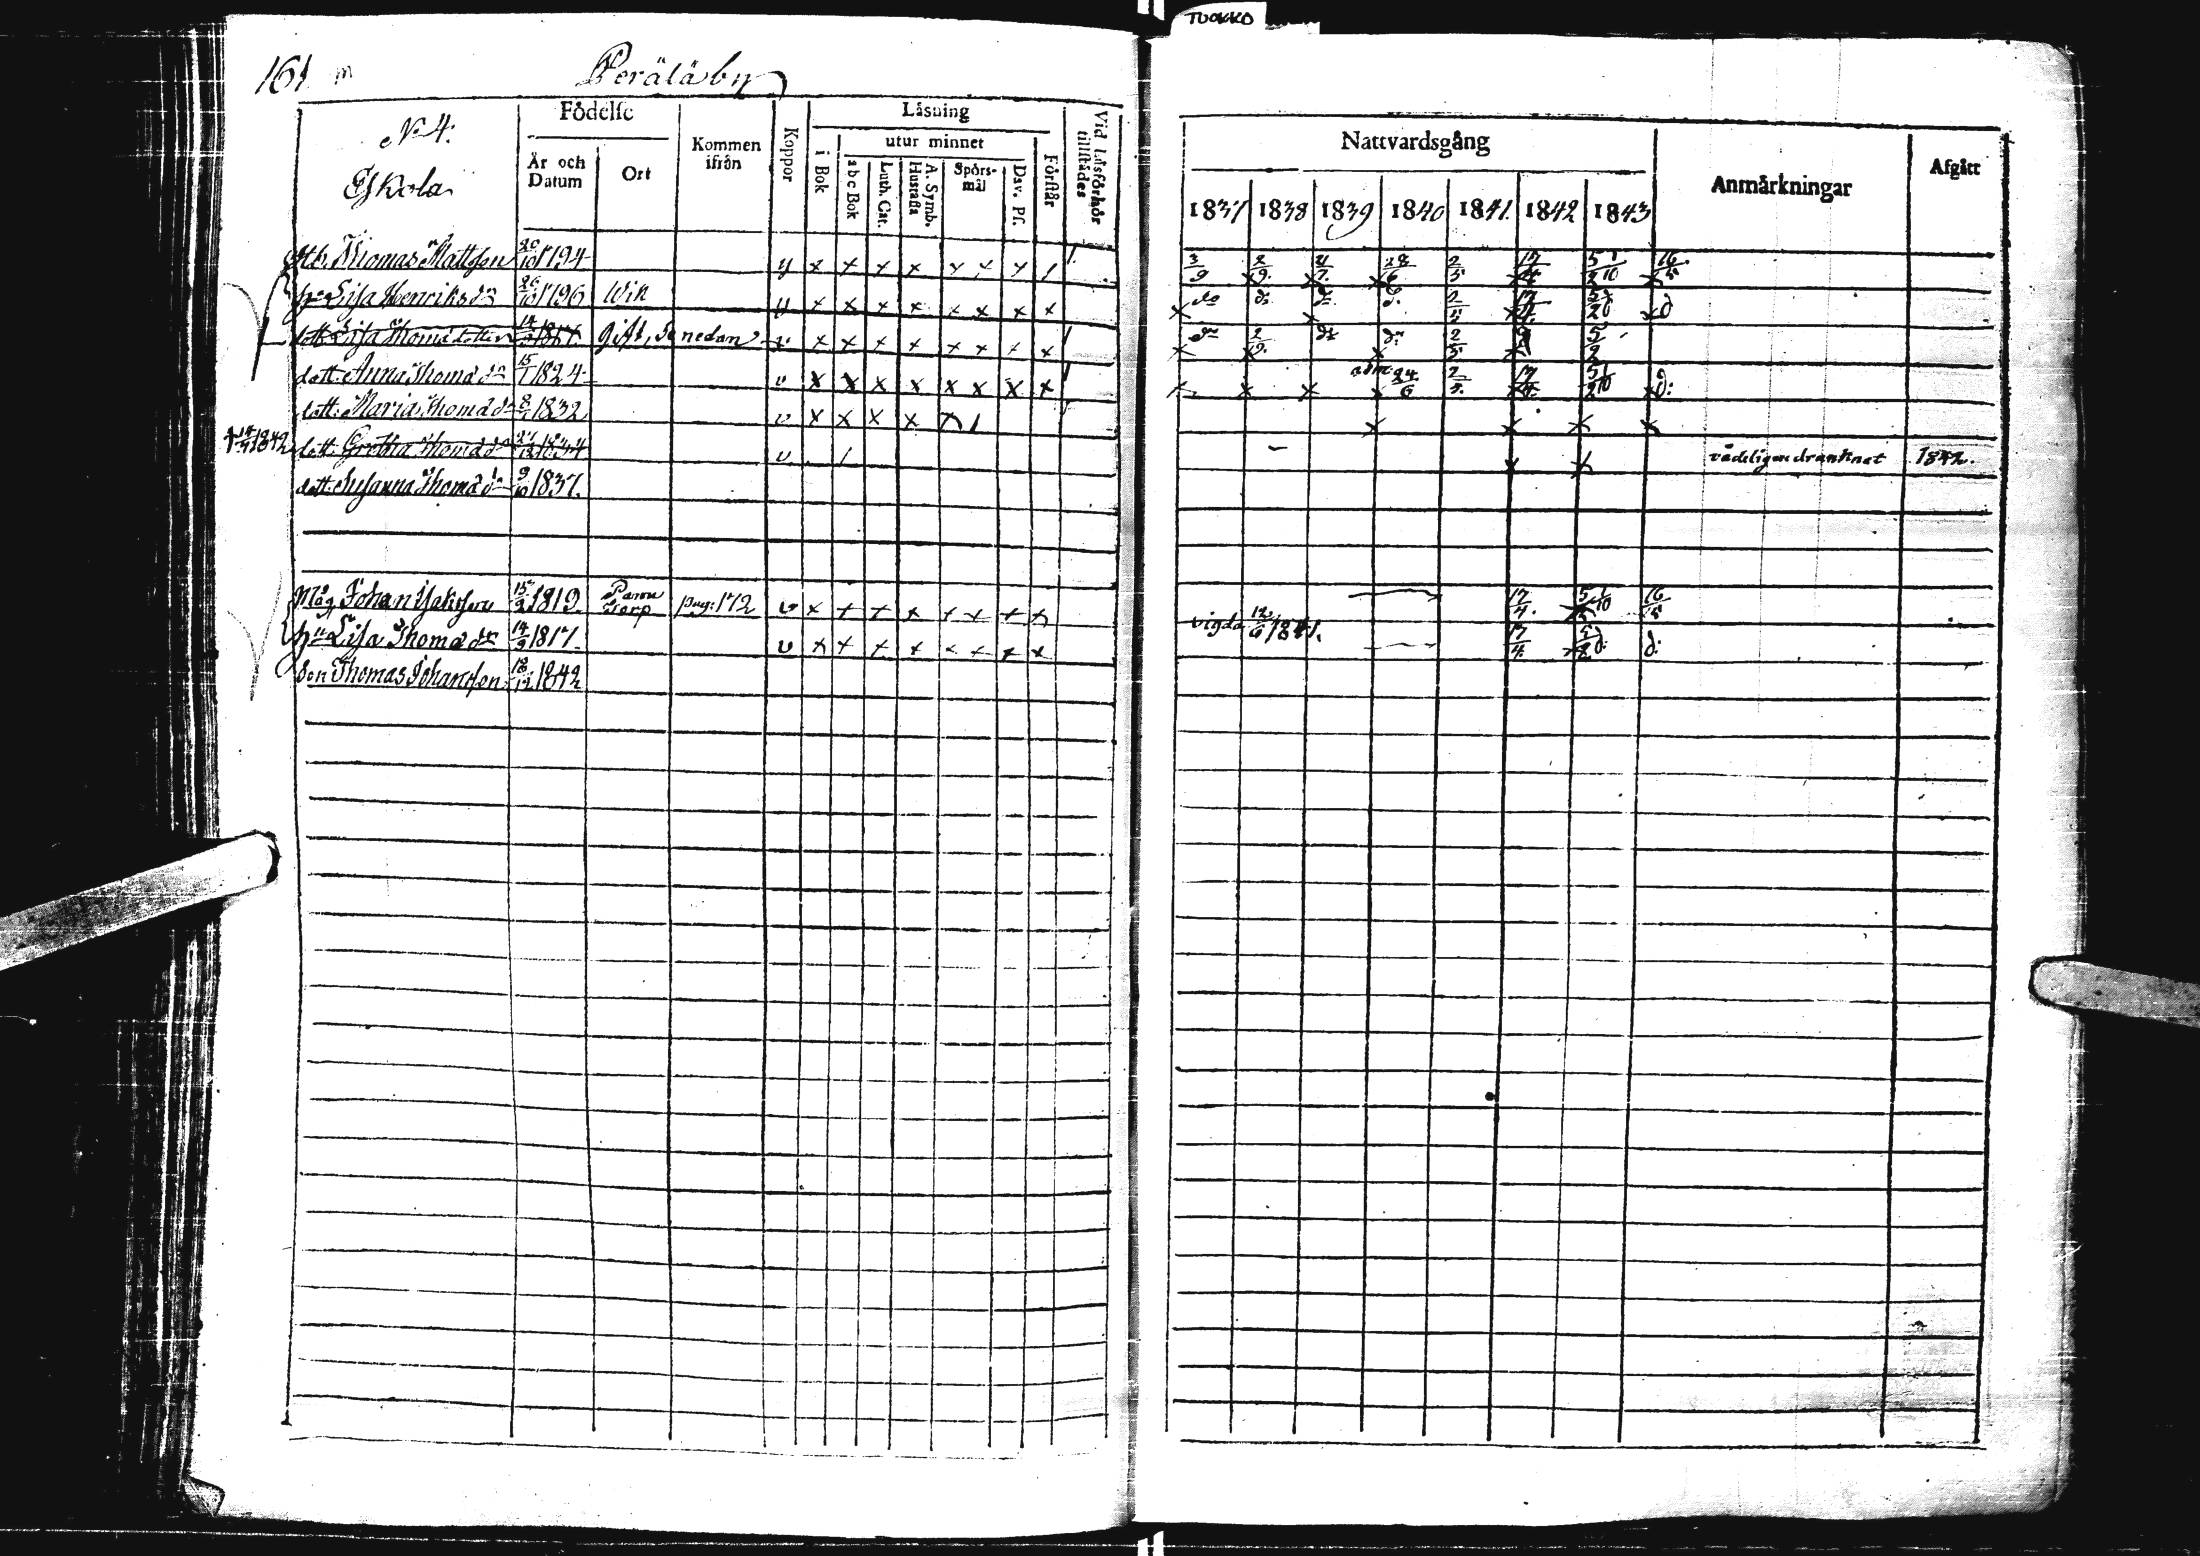 TUOKKO
161 m Peräläby
No 4:
Eskola
Födelse
År och Datum
Ort
Kommen ifrån
Koppor
Läsning
i Bok
utur minnet
a b c Bok
Luth. Cat.
A. Symb. Hustafla
Spörsmål
Dav. Ps.
Förstår
Vid Läsförhör tillstädes
Thomas Mattsson 20/10 1794 x x x x x x x
hu Lisa Henriksdr 26/10 1796 Wik x x x x x x x x
dott: Lisa Thomadotter 1817 gift, se nedan v x x x x x x x x
dott: Anna Thomadr 15/1 1824 v x x x x x x x x
dott: Maria Thomadr 1832 v x x x x
1842 dott: Gretha Thomadr 1834 v
dott: Susanna Thomadr 9/10 1837.
Måg Johan 1819 pag: 172 v x x x x x x x x
hu Lisa Thomadr 14/9 1817 v x x x x x x x x
Son Thomas Johansson 1842
Nattvardsgång
1837 1838 1839 1840 1841. 1842 1843
Anmärkningar
Afgått
3/9 2/9 28/6 2/5 17/4 5/2 1/10 16/5
do do do 2/5 17/4 5/2 d
do 2/9 do do 2/5 5/2
adm 24/6 2/5 17/4 5/2 1/10 d:
vådeligen drunknat 1842.
17/4. 1/10 16/5
vigda 1841.
17/4 d: d: